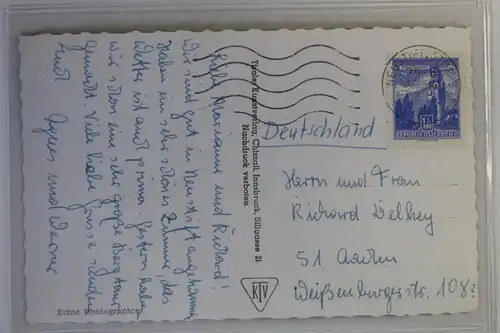 Liebe Marianne und Richard!
Wir sind gut in Neustift angekommen
Haben ein sehr schönes Zimmer, das
Wetter ist auch prima. Gestern haben
wir schon eine sehr große Bergtour
gemacht. Viele liebe Grüsse senden
Euch Agnes und Werner
Echte Photographie
Tiroler Kunstverlag, Chizzali, Innsbruck, Sillgasse 21
Nachdruck verboten
KTV
Deutschland
REPUBLIK ÖSTERREICH
Herrn und Frau
Richard Delhey
51 Aachen
Weißenburgerstr. 108